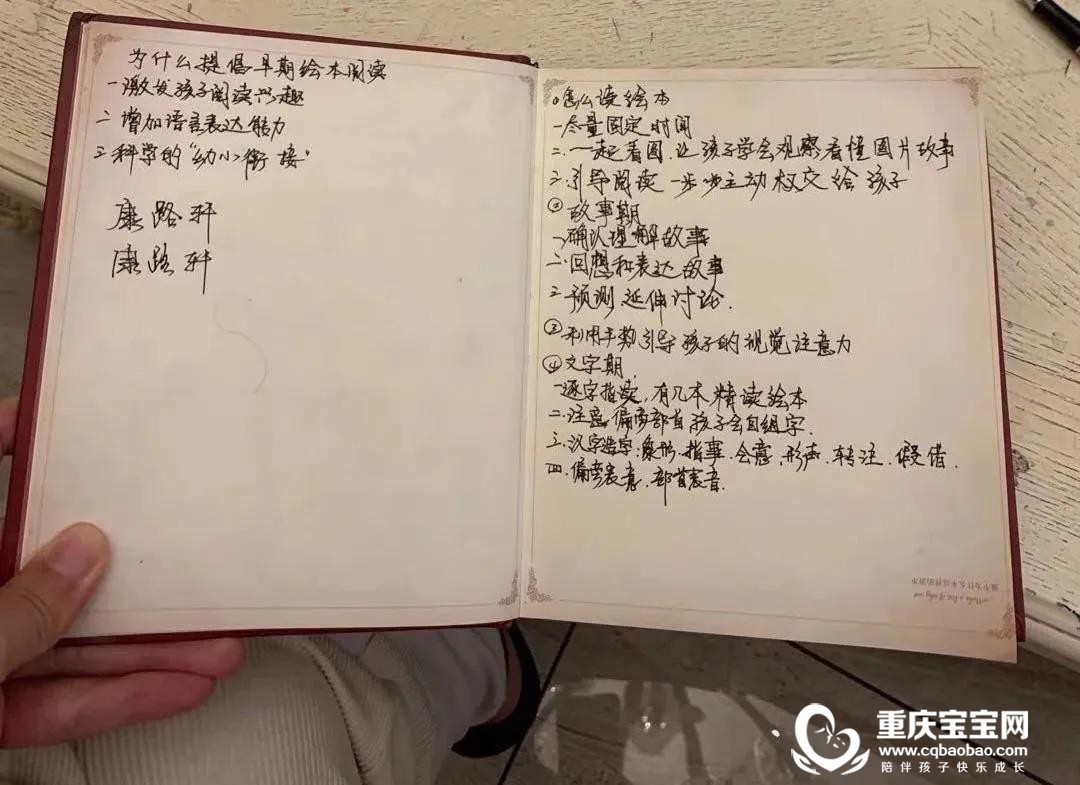 为什么提倡早期绘本阅读
一激发孩子阅读兴趣
二增加语言表达能力
三科学的“幼小衔接”
康路轩
康路轩
怎么读绘本
一尽量固定时间
二.一起看图.让孩子学会观察看懂图片故事
三.引导阅读 一步步主动权交给孩子
②故事期
一确认理解故事
二.回想和表达故事
三预测 延伸讨论.
③利用手势引导孩子的视觉注意力
④文字期.
一逐字指读,有几本精读绘本
二.注意偏旁部首孩子会自组字.
三.汉字造字:象形.指事.会意.形声.转注.假借.
四.偏旁表意.部首表音.
重庆宝宝网
www.cqbaobao.com
陪伴孩子快乐成长